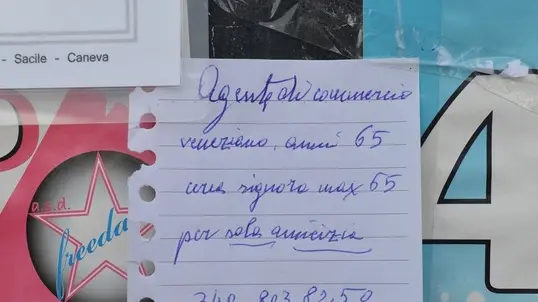 - Sacile - Caneva
Agente di commercio
veneziano, anni 65
cerca signora max 65
per sola amicizia
340 803 82 50
a.s.d.
freeda
4